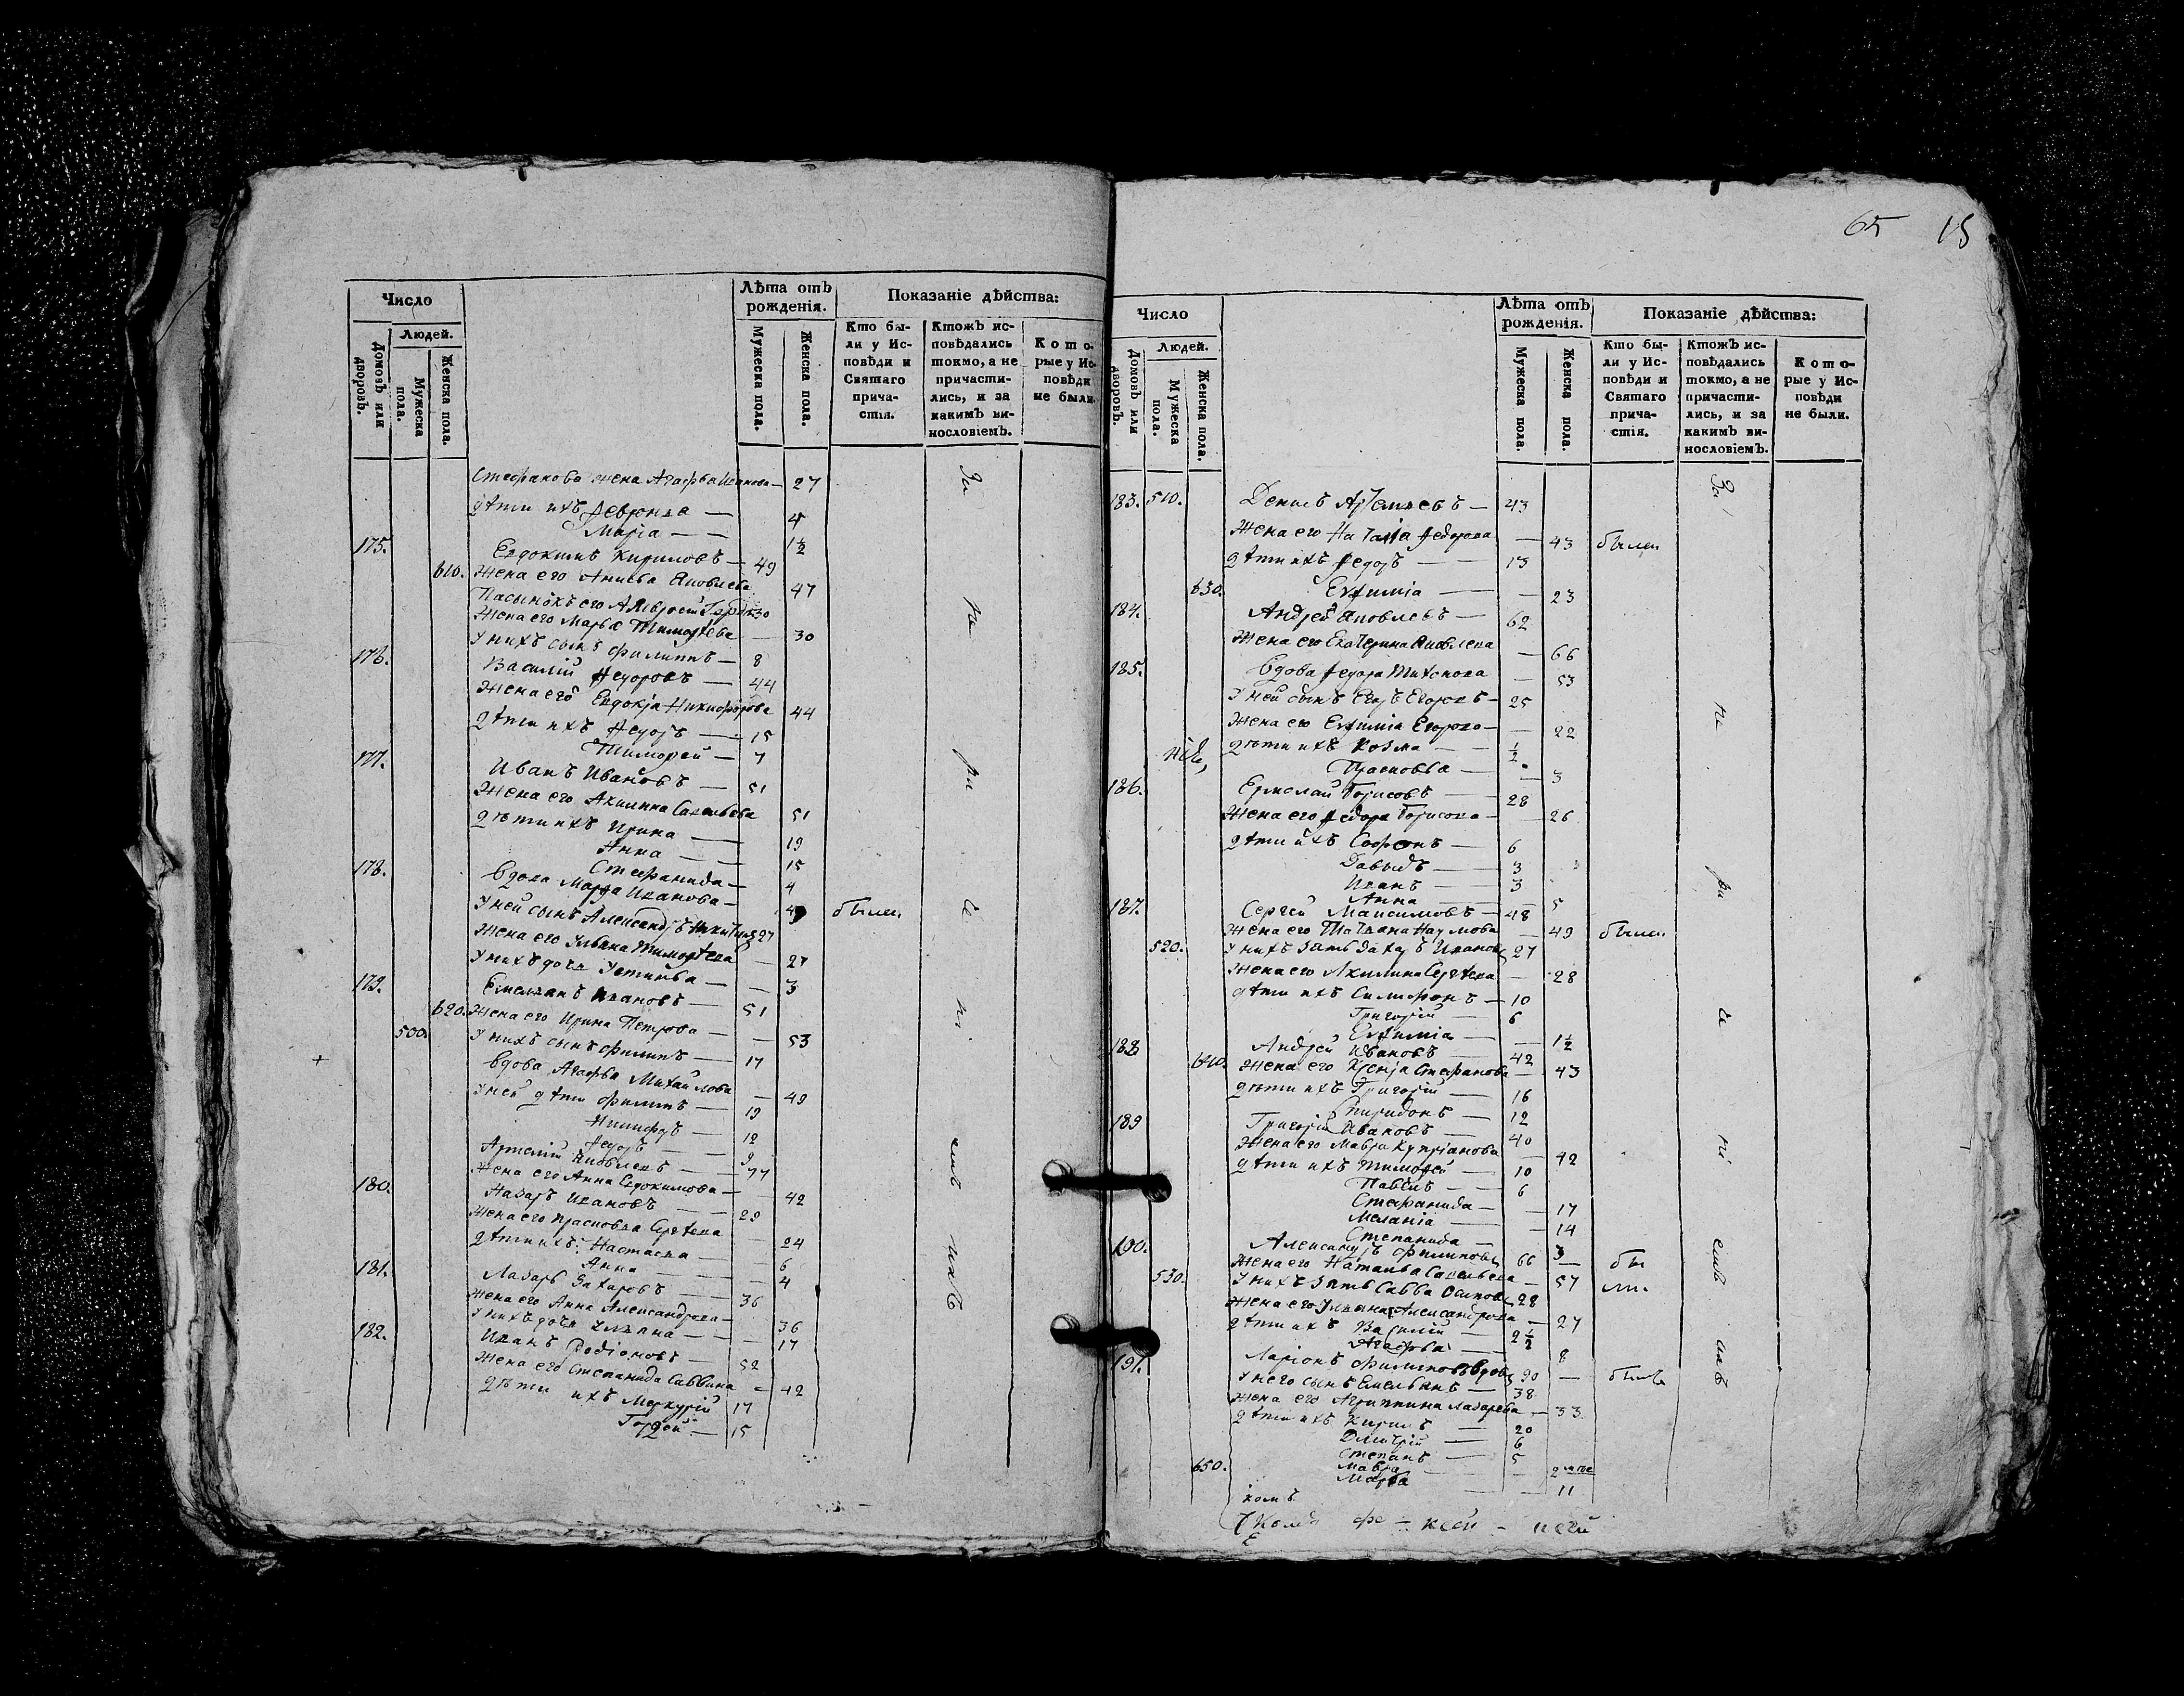 Число
Людей.
Домовъ или дворовъ.
Мужеска пола.
Женска пола.
Лѣта отъ рожденія.
Мужеска пола.
Женска пола.
Показаніе дѣйства:
Кто бы-
ли у Ис-
повѣди и
Святаго
прича-
стія.
Ктожъ ис-
повѣдались
токмо, а не
причасти-
лись, и за
какимъ ви-
нословіемъ.
Кото-
рые у Ис-
повѣди
не были.
Стефанова жена Агафья Иванова — 27
дѣти ихъ Феврония — 4
Марія — 1½
175. Евдокимъ Кириловъ — 49
610. Жена его Анисья Яковлева 47
Пасынокъ его Амвросій 30
Жена его Марья Тимофѣева — 30
У нихъ сынъ Филиппъ — 8
176. Василій Федоровъ — 44
Жена его Евдокія Никифорова 44
дѣти ихъ Федоръ — 15
Тимофей — 7
177. Иванъ Ивановъ — 51
Жена его Акилина Савельева 51
дѣти ихъ Ирина — 19
Анна — 15
Стефанида — 4
178. Вдова Марфа Иванова — были
У ней сынъ Александръ Никитинъ 27
Жена его Ульяна Тимофѣева — 27
У нихъ дочь Устинья — 3
179. Емельянъ Ивановъ — 51
620. Жена его Ирина Петрова — 53
500. У нихъ сынъ Филиппъ — 17
Вдова Агафья Михайлова — 49
У ней дѣти Филиппъ — 19
Никифоръ — 12
Федоръ — 9
Артемій Яковлевъ — 77
Жена его Анна Евдокимова — 42
180. Назаръ Ивановъ — 29
Жена его Прасковья Сергѣева 24
дѣти ихъ: Настасья — 6
Анна — 4
181. Лазарь Захаровъ — 36
Жена его Анна Александрова — 36
У нихъ дочь Ульяна — 17
182. Иванъ Родіоновъ — 52
Жена его Степанида Саввина — 42
дѣти ихъ Меркурій 17
Гордей — 15
65 15
Число
Людей.
Домовъ или дворовъ.
Мужеска пола.
Женска пола.
Лѣта отъ рожденія.
Мужеска пола.
Женска пола.
Показаніе дѣйства:
Кто бы-
ли у Ис-
повѣди и
Святаго
прича-
стія.
Ктожъ ис-
повѣдались
токмо, а не
причасти-
лись, и за
какимъ ви-
нословіемъ.
Кото-
рые у Ис-
повѣди
не были.
183. 510. Денисъ Артемьевъ — 43
Жена его Наталія Федорова — 43 были
дѣти ихъ Федоръ — 13
630. Евѳимія — 23
184. Андрей Яковлевъ — 62
Жена его Екатерина Яковлева — 66
185. Вдова Федора Тихонова — 53
У ней сынъ Егоръ Егоровъ — 25
Жена его Евѳимія Егорова — 22
дѣти ихъ Козма — ½
Прасковья — 3
186. Ермолай Борисовъ — 28
Жена его Федора Борисова — 26
дѣти ихъ Софонъ — 6
Давыдъ — 3
Иванъ — 3
Анна — 5
187. Сергей Максимовъ — 48
Жена его Татіана Наумова — 49 были
520. У нихъ зять Захаръ Ивановъ 27
Жена его Акилина Сергѣева — 28
дѣти ихъ Силифонъ — 10
Григорій — 6
Евѳимія — 1½
188 Андрей Ивановъ — 42
640. Жена его Ксенія Стефанова — 43
дѣти ихъ Григорій — 16
Спиридонъ — 12
189 Григорій Ивановъ — 40
Жена его Мавра Купріанова — 42
дѣти ихъ Тимофей — 10
Павелъ — 6
Стефанида — 17
Меланія — 14
Степанида — 3
190. Александръ Филиповъ 66 — бы
Жена его Наталья Савельева — 57 ли.
530. У нихъ зять Савва Осиповъ 28
Жена его Ульяна Александрова — 27
дѣти ихъ Василій — 2½
Агафья — 8
191. Ларіонъ Филиповъ вдовъ 90 —
У него сынъ Емельянъ — 38
Жена его Агриппина Лазарева — 33
дѣти ихъ Кирилъ — 20
Дмитрій — 6
Степанъ — 5
650. Мавра —
Марфа — 11